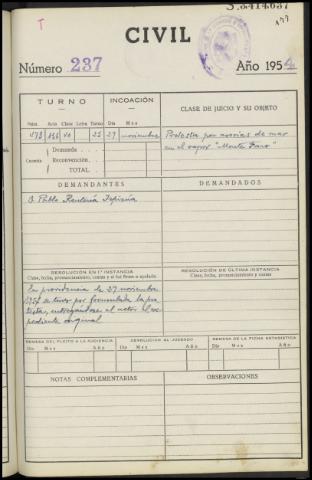 T
CIVIL
Número 237
Año 1954
TURNO
INCOACIÓN
CLASE DE JUICIO Y SU OBJETO
Núm. Acto Clase Letra Turno Día Mes
27 noviembre
Protesta por averías de mar
en el vapor "Monte Faro"
Cuantía
Demanda
Reconvención
TOTAL
DEMANDANTES
DEMANDADOS
D. Pablo Rentería
RESOLUCIÓN EN 1.ª INSTANCIA
Clase, fecha, pronunciamiento, costas y si fué firme o apelada
RESOLUCIÓN DE ÚLTIMA INSTANCIA
Clase, fecha, pronunciamiento y costas
En providencia de 27 noviembre
1954 se tuvo por formulada la pro
testa, entregándose al actor el ex
pediente original
REMESA DEL PLEITO A LA AUDIENCIA
DEVOLUCIÓN AL JUZGADO
REMESA DE LA FICHA ESTADÍSTICA
Día Mes Año
Día Mes Año
Día Mes Año
NOTAS COMPLEMENTARIAS
OBSERVACIONES